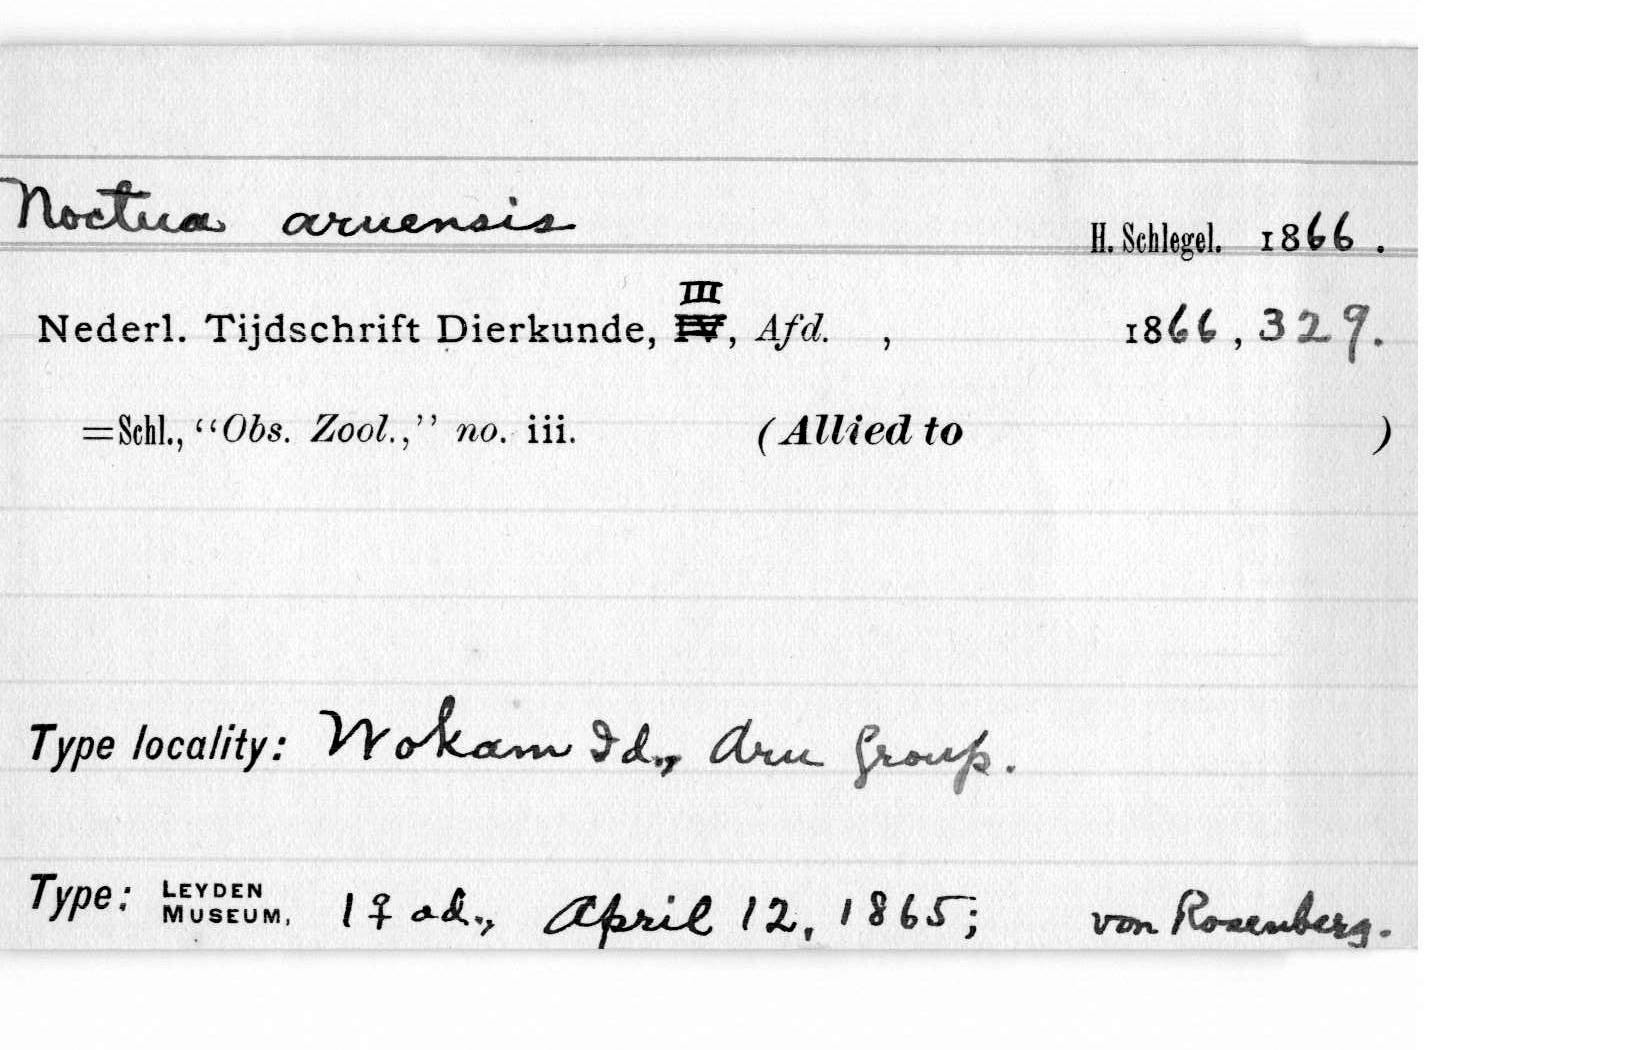 Noctua aruensis
H. Schlegel. 1866.
III
Nederl. Tijdschrift Dierkunde, IV, Afd. , 1866, 329.
=Schl., “Obs. Zool.,” no. iii. (Allied to )
Type locality: Wokam Id., Aru Group.
Type: LEYDEN MUSEUM, 1 ♀ ad., April 12, 1865; von Rosenberg.